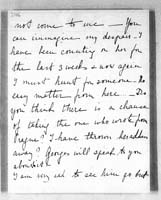 not come to me — You
can immagine my despair. I
have been counting on her for
the last 3 weeks & now again
I must hunt for someone. No
easy matter from here — Do
you think there is a chance
of taking the one who wrote from
Prague? I have thrown
away? Georges will speak to you
about it.
I am very sad to see him go but